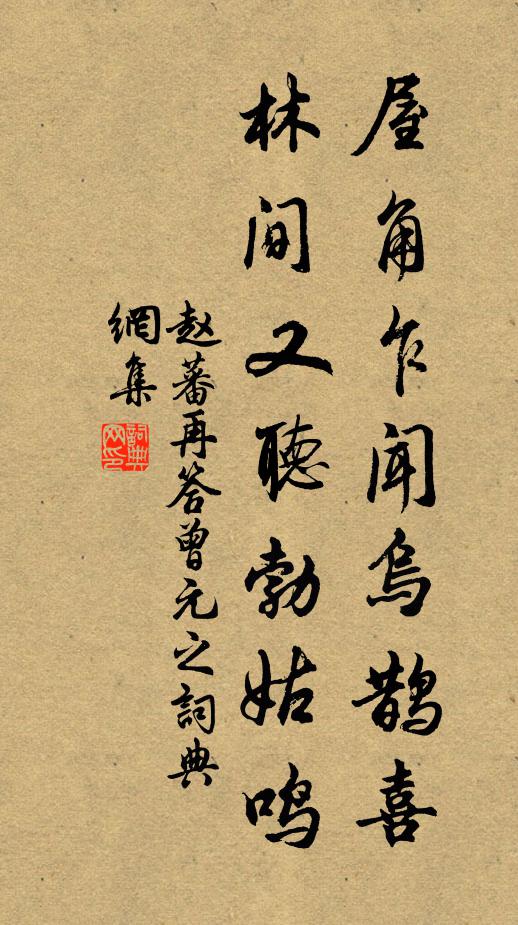 屋角乍闻乌鹊喜
林间又聽勃姑鸣
赵蕃再答曾元之詞典
網集
詞典
网印